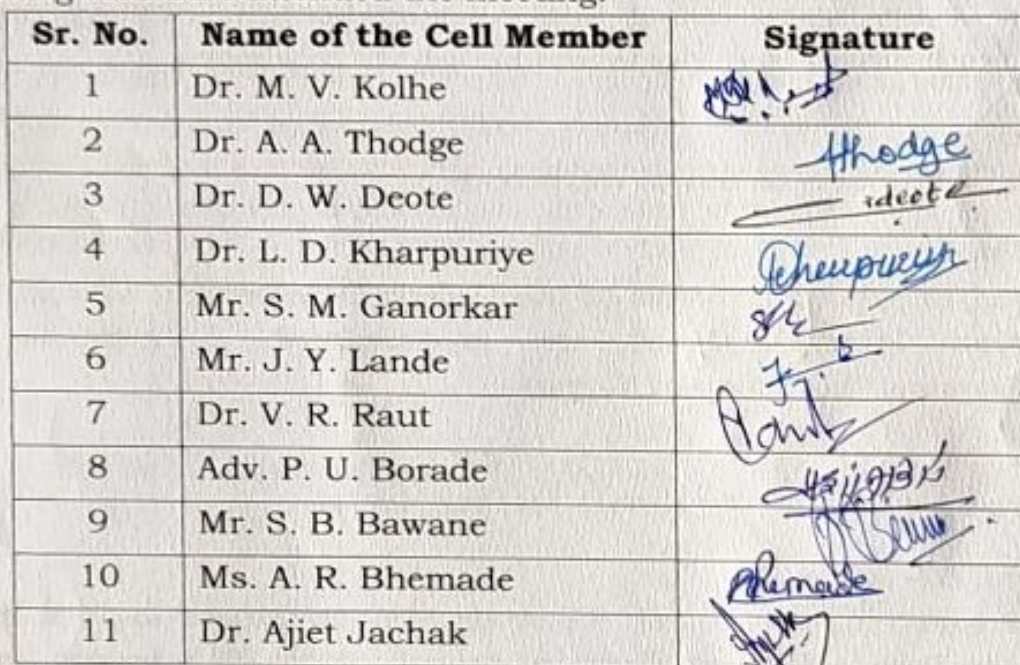 Sr. No. Name of the Cell Member Signature
1 Dr. M. V. Kolhe
2 Dr. A. A. Thodge Athodge
3 Dr. D. W. Deote deote
4 Dr. L. D. Kharpuriye
5 Mr. S. M. Ganorkar
6 Mr. J. Y. Lande
7 Dr. V. R. Raut
8 Adv. P. U. Borade
9 Mr. S. B. Bawane
10 Ms. A. R. Bhemade Bhemade
11 Dr. Ajiet Jachak